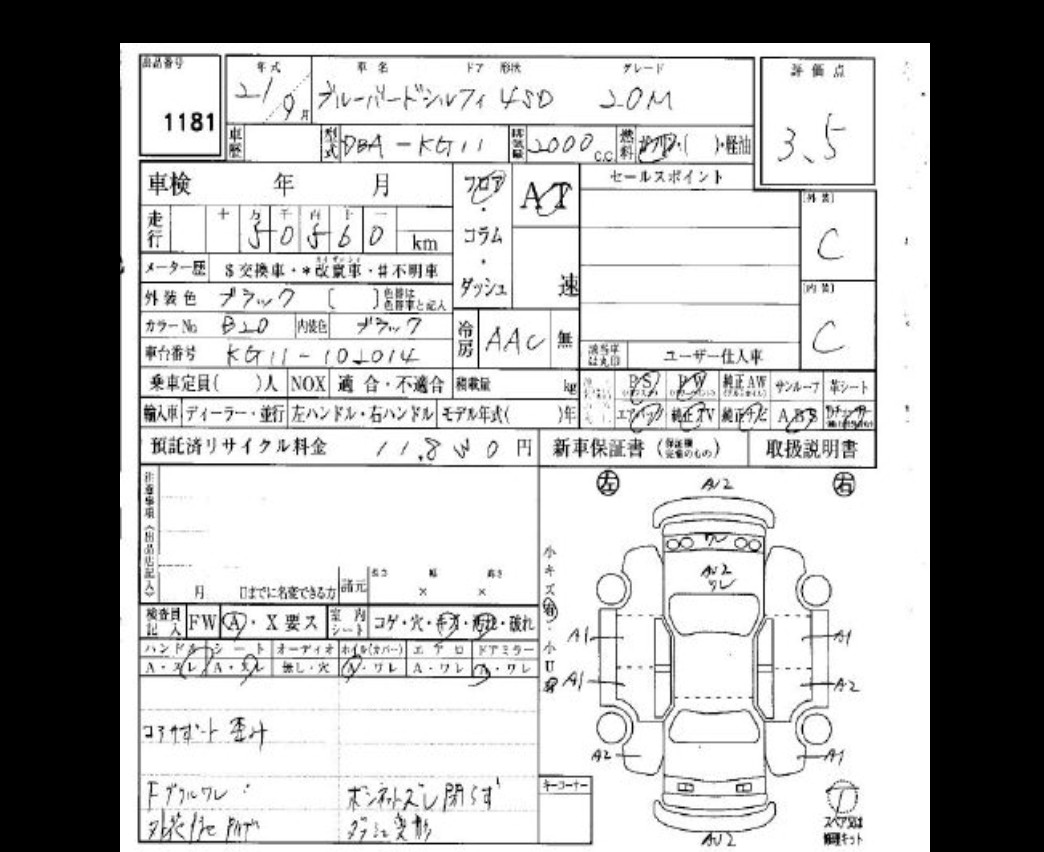 出品番号 年式 車名 ドア 形状 グレード 評価点
1181 21/9月 ブルーバードシルフィ 4SD 20M 3.5
車歴 型式 DBA-KG11 排気量 2000 C.C 燃料 ( )・軽油
車検 年 月 フロア AT セールスポイント [外装]
走行 十 万 千 百 十 一 コラム C
5 0 5 6 0 km
メーター歴 $交換車・*改竄車・#不明車 ダッシュ 速 [内装]
外装色 ブラック [ ] 色替は色替車と記入 C
カラーNo B20 内装色 ブラック 冷房 AAC 無
車台番号 KG11-102014 該当車は丸印 ユーザー仕入車
乗車定員( )人 NOX 適合・不適合 積載量 kg PS PW 純正AW サンルーフ 革シート
輸入車 ディーラー・並行 左ハンドル・右ハンドル モデル年式( )年 エアバッグ 純正TV 純正ナビ ABS
預託済リサイクル料金 11,840円 新車保証書 取扱説明書
注意事項《出品店記入》 左 AU2 右
ワレ
AU2
ワレ
月 日までに名変できる方 諸元 長さ 幅 高さ
× ×
検査員記入 FW A・X要ス 室内シート コゲ・穴・キズ・汚れ・破れ
小キズ有・小U有
ハンドル シート オーディオ ホイル(カバー) エアロ ドアミラー
A・スレ A・スレ 無し・穴 A・ワレ A・ワレ A・ワレ
A1 A1
A1 A2
コアサポート歪み
A2 A1
Fグリルワレ ボンネットズレ閉らず
ダッシュ変形
キーコーナー
AU2
スペア又は修理キット